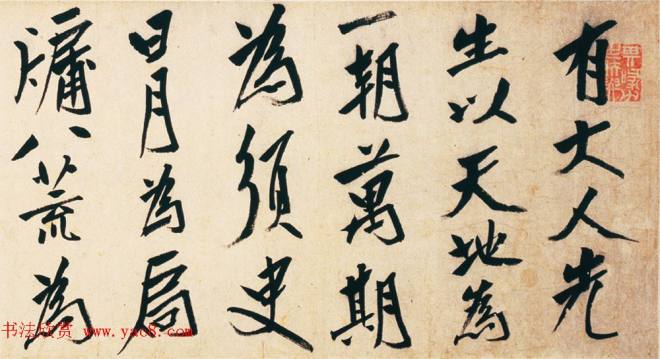 有大人先
生以天地為
一朝萬期
為須臾
日月為扃
牖八荒為
书法欣赏 www.yac8.com